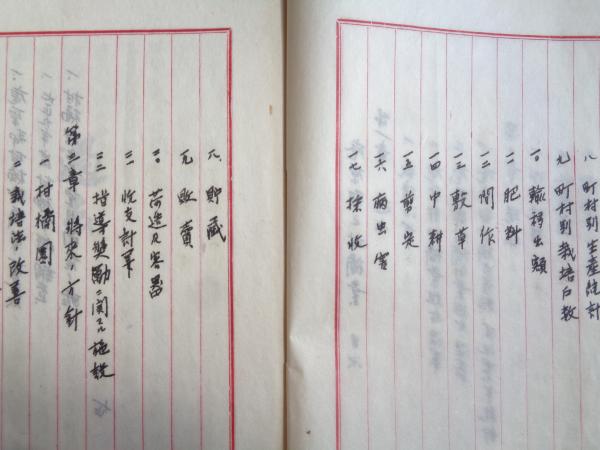 八 町村別生産統計
九 町村別栽培戸数
一〇 輸移出額
一一 肥料
一二 間作
一三 敷草
一四 中耕
一五 剪定
一六 病虫害
一七 採收
一八 貯藏
一九 販賣
二〇 荷造及容器
二一 收支計算
二二 指導奨励ニ関スル施設
第二章 将来ノ方針
一 柑橘園
二 栽培法ノ改善